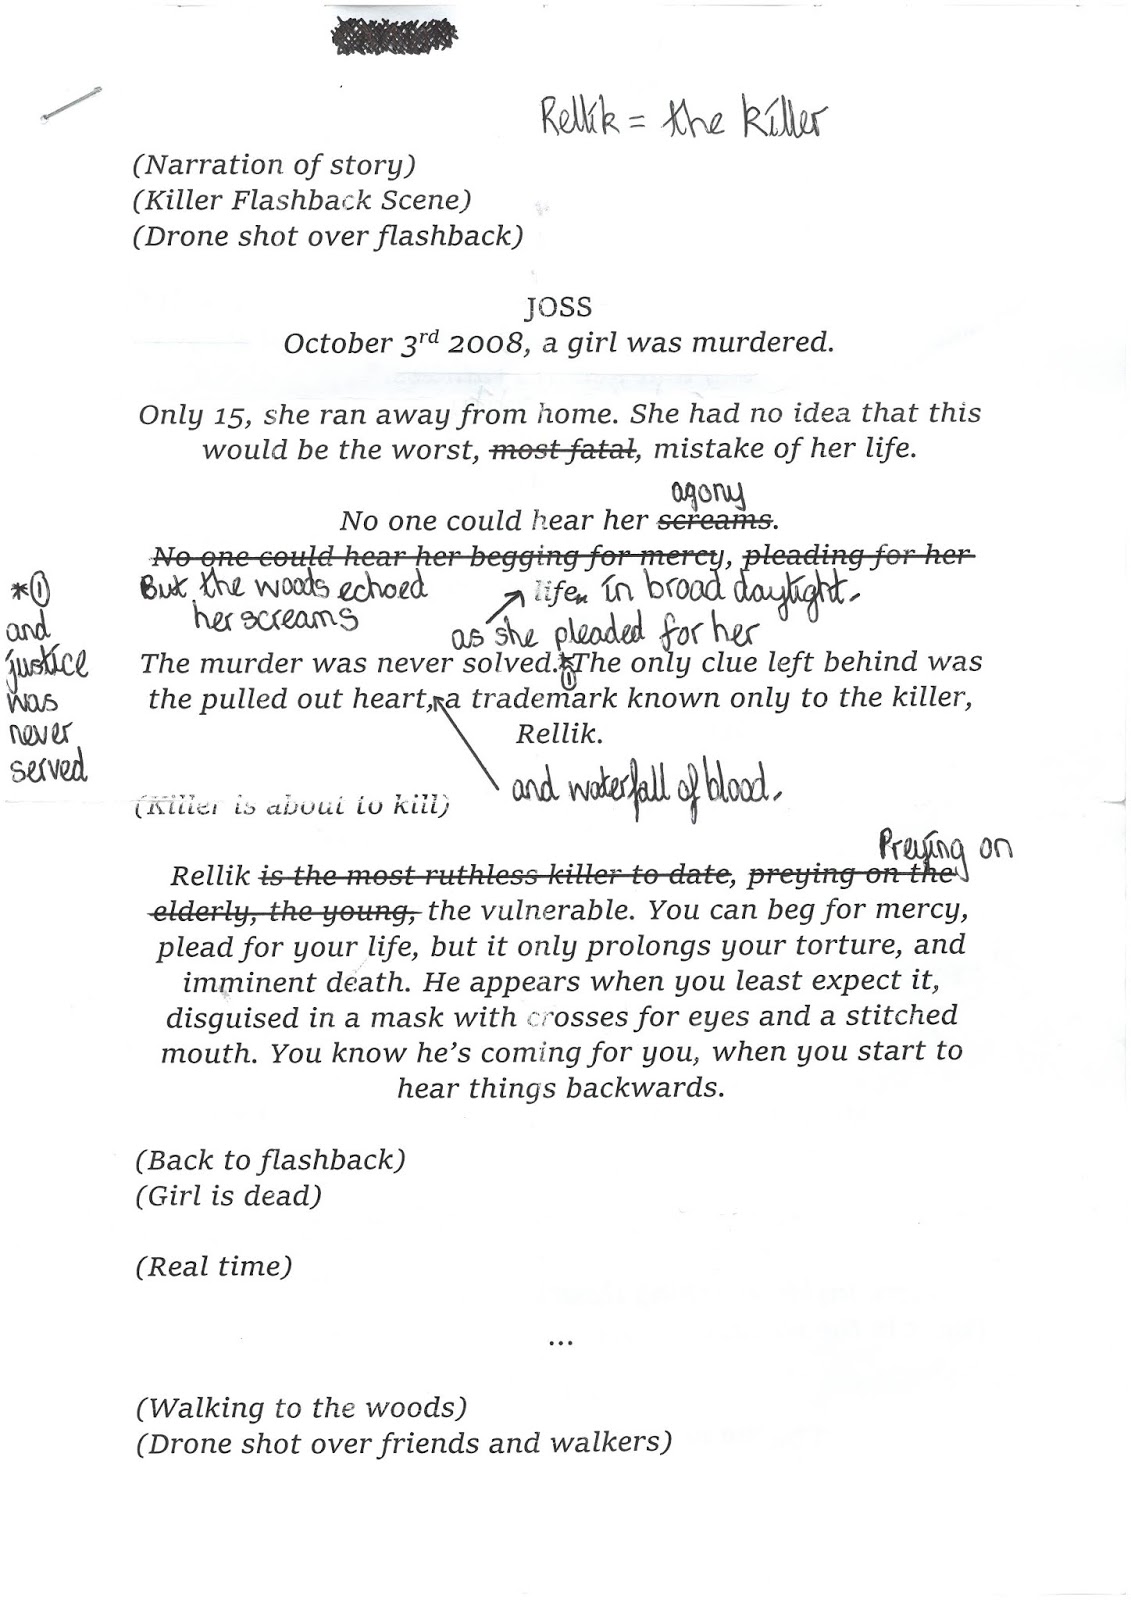 Rellik = the killer
(Narration of story)
(Killer Flashback Scene)
(Drone shot over flashback)
JOSS
October 3rd 2008, a girl was murdered.
Only 15, she ran away from home. She had no idea that this
would be the worst, most fatal, mistake of her life.
agony
No one could hear her screams.
No one could hear her begging for mercy, pleading for her
But the woods echoed
life in broad daylight.
her screams
as she pleaded for her
*①
and
justice
was
never
served
The murder was never solved.*① The only clue left behind was
the pulled out heart, a trademark known only to the killer,
Rellik.
and waterfall of blood.
(Killer is about to kill)
Preying on
Rellik is the most ruthless killer to date, preying on the
elderly, the young, the vulnerable. You can beg for mercy,
plead for your life, but it only prolongs your torture, and
imminent death. He appears when you least expect it,
disguised in a mask with crosses for eyes and a stitched
mouth. You know he’s coming for you, when you start to
hear things backwards.
(Back to flashback)
(Girl is dead)
(Real time)
...
(Walking to the woods)
(Drone shot over friends and walkers)